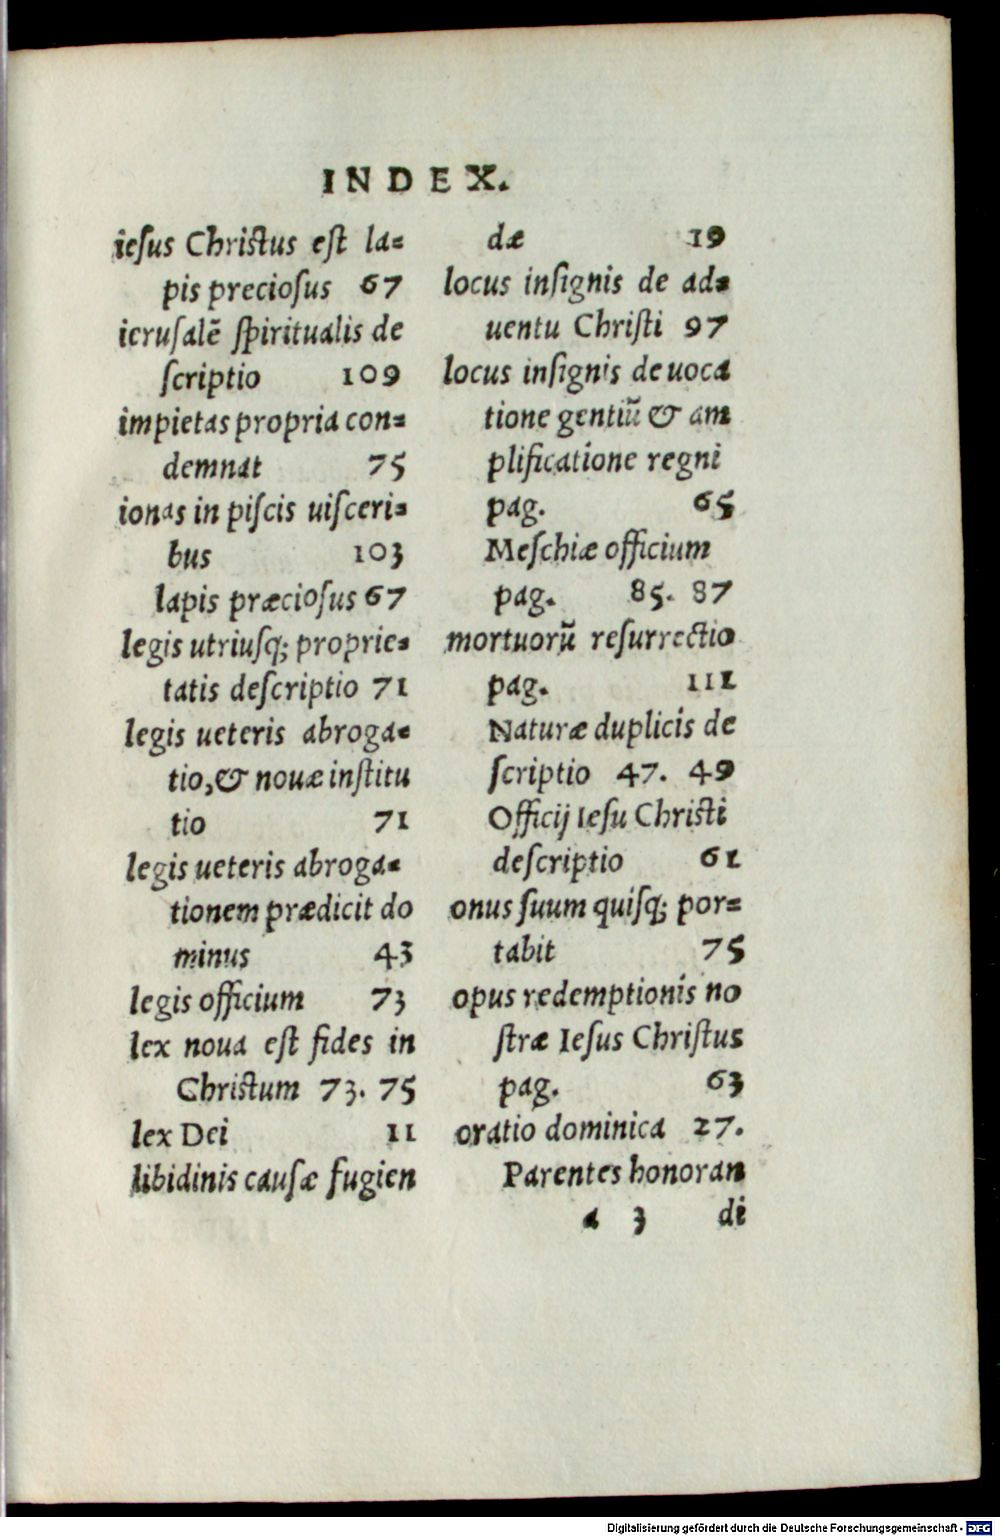 INDEX.
ieſus Chriſtus eſt la⸗
pis precioſus 67
ieruſalē ſpiritualis de
ſcriptio 109
impietas propria con⸗
demnat 75
ionas in piſcis uiſceri⸗
bus 103
lapis præcioſus 67
legis utriuſq; proprie⸗
tatis deſcriptio 71
legis ueteris abroga⸗
tio, & nouæ inſtitu
tio 71
legis ueteris abroga⸗
tionem prædicit do
minus 43
legis officium 73
lex noua eſt fides in
Chriſtum 73. 75
lex Dei 11
libidinis cauſæ fugien
dæ 19
locus inſignis de ad⸗
uentu Chriſti 97
locus inſignis de uoca
tione gentiū & am
plificatione regni
pag. 65
Meſchiæ officium
pag. 85. 87
mortuorū reſurrectio
pag. 111
Naturæ duplicis de
ſcriptio 47. 49
Officij Ieſu Chriſti
deſcriptio 61
onus ſuum quiſq; por⸗
tabit 75
opus redemptionis no
ſtræ Ieſus Chriſtus
pag. 63
oratio dominica 27.
Parentes honoran
a 3 di
Digitalisierung gefördert durch die Deutsche Forschungsgemeinschaft - DFG